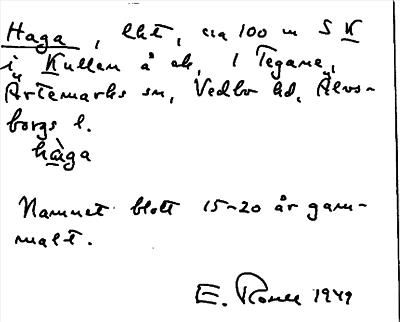 Haga, lht, ca 100 m S K
i Kullen å ek, 1 Tegane,
Ärtemarks sn, Vedbo hd, Älvs-
borgs l.
hàga
Namnet blott 15-20 år gam-
malt.
E. 1949